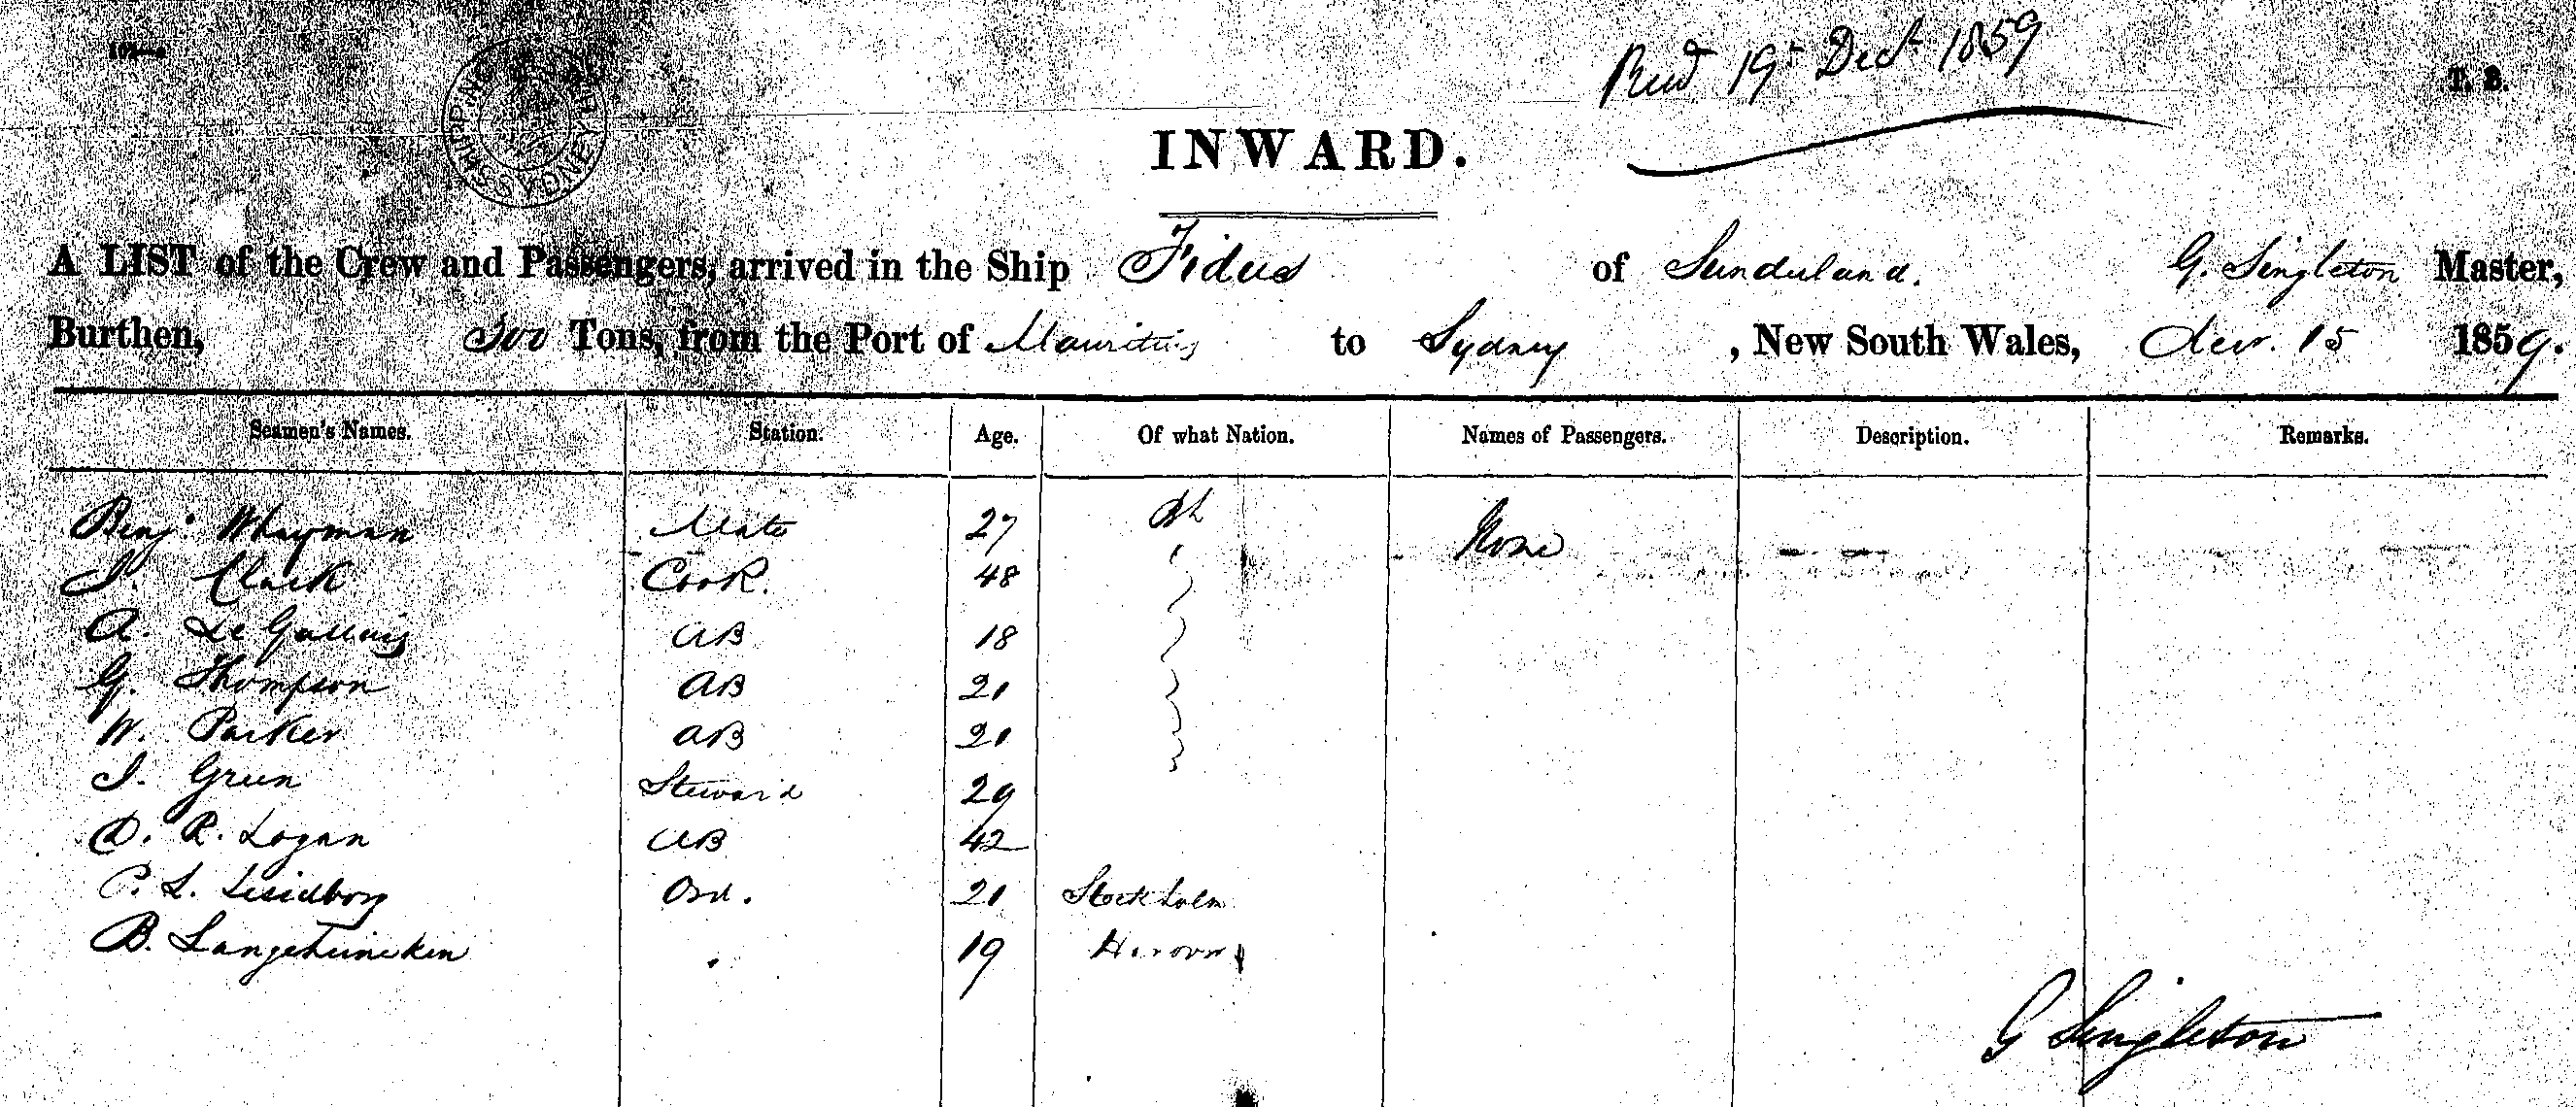 Recd 19th Decr 1859
T. B.
SHIPPING MASTER SYDNEY
INWARD.
A LIST of the Crew and Passengers, arrived in the Ship Fidus of Sunderland. G. Singleton Master,
Burthen, 300 Tons, from the Port of Mauritius to Sydney , New South Wales, Decr. 15 1859.
Seamen's Names. Station. Age. Of what Nation. Names of Passengers. Description. Remarks.
Benj Whayman Mate 27 Bh None
J. Clark Cook. 48 "
A. Le Gallais AB 18 "
G. Thompson AB 20 "
W. Parker AB 20 "
J. Green Steward 29 "
D. R. Logan AB 42
C. L. Lindborg Ord. 20 Stockholm
B. Langeheineken " 19 Hanover
G Singleton